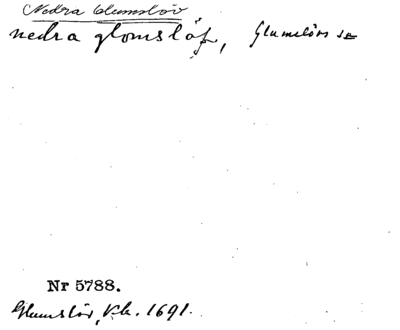 Nedra Glumslöv
nedra glomslöf, Glumslövs se
Nr 5788.
Glumslöv, Kb. 1691.